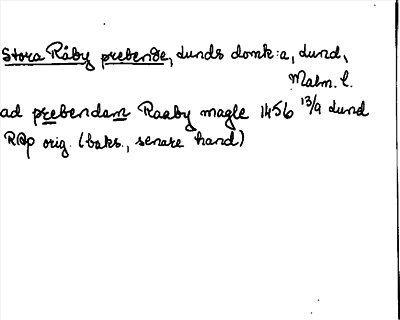 Stora Råby prebende, Lunds domk:a, Lund,
Malm. l.
ad prebendam Raaby magle 1456 13/9 Lund
RAp orig. (baks., senare hand)